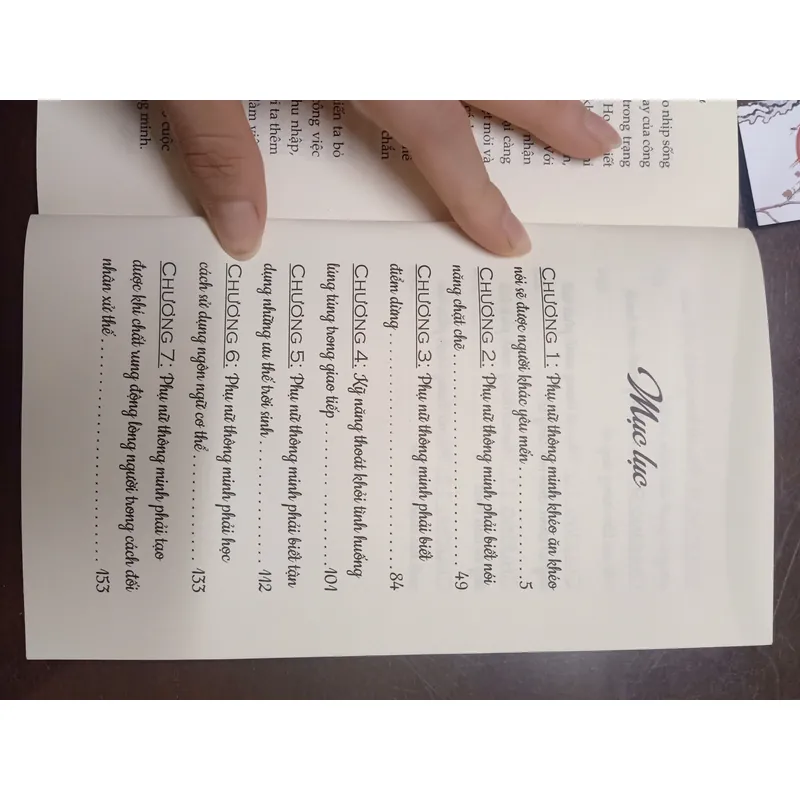 nhịp sống
của công
trong trạng
Với
nhận
càng
mỏi và
chắn
ta bỏ
công việc
nhập,
ta thêm
cuộc
minh.
Mục lục
CHƯƠNG 1: Phụ nữ thông minh khéo ăn khéo
nói sẽ được người khác yêu mến . . . . . . . . . . . . . 5
CHƯƠNG 2: Phụ nữ thông minh phải biết nói
năng chặt chẽ . . . . . . . . . . . . . . . . . . . . . . . . . . 49
CHƯƠNG 3: Phụ nữ thông minh phải biết
điểm dừng . . . . . . . . . . . . . . . . . . . . . . . . . . . . 84
CHƯƠNG 4: Kỹ năng thoát khỏi tình huống
lúng túng trong giao tiếp . . . . . . . . . . . . . . . . . 101
CHƯƠNG 5: Phụ nữ thông minh phải biết tận
dụng những ưu thế trời sinh . . . . . . . . . . . . . . . 112
CHƯƠNG 6: Phụ nữ thông minh phải học
cách sử dụng ngôn ngữ cơ thể . . . . . . . . . . . . . . 133
CHƯƠNG 7: Phụ nữ thông minh phải tạo
được khí chất rung động lòng người trong cách đối
nhân xử thế . . . . . . . . . . . . . . . . . . . . . . . . . . . 153